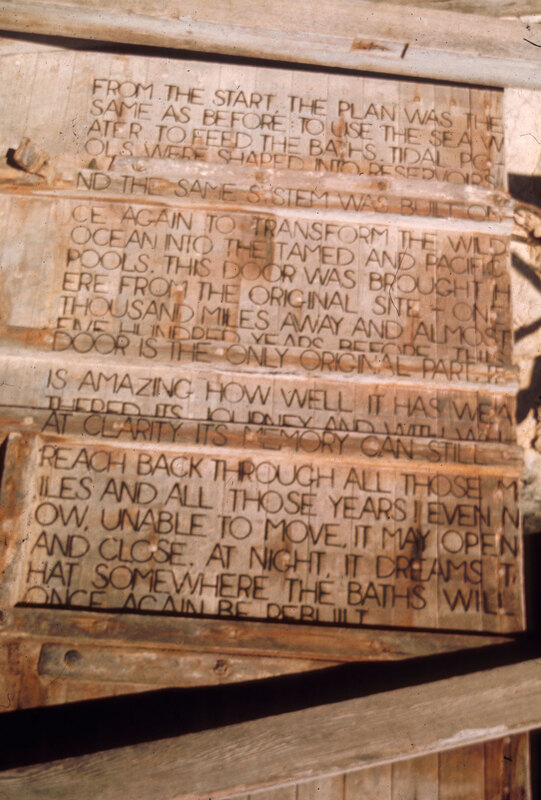 FROM THE START, THE PLAN WAS THE
SAME AS BEFORE: TO USE THE SEA W
ATER TO FEED THE BATHS. TIDAL PO
OLS WERE SHAPED INTO RESERVOIRS
ND THE SAME SYSTEM WAS BUILT ON
CE AGAIN TO TRANSFORM THE WILD
OCEAN INTO THE TAMED AND PACIFIC
POOLS. THIS DOOR WAS BROUGHT H
ERE FROM THE ORIGINAL SITE - ONE
THOUSAND MILES AWAY AND ALMOST
FIVE HUNDRED YEARS BEFORE. THIS
DOOR IS THE ONLY ORIGINAL PART.
IS AMAZING HOW WELL IT HAS WEA
THERED ITS JOURNEY AND WITH
AT CLARITY ITS MEMORY CAN STILL
REACH BACK THROUGH ALL THOSE M
ILES AND ALL THOSE YEARS. EVEN N
OW, UNABLE TO MOVE, IT MAY OPEN
AND CLOSE. AT NIGHT, IT DREAMS T
HAT SOMEWHERE THE BATHS WILL
ONCE AGAIN BE REBUILT